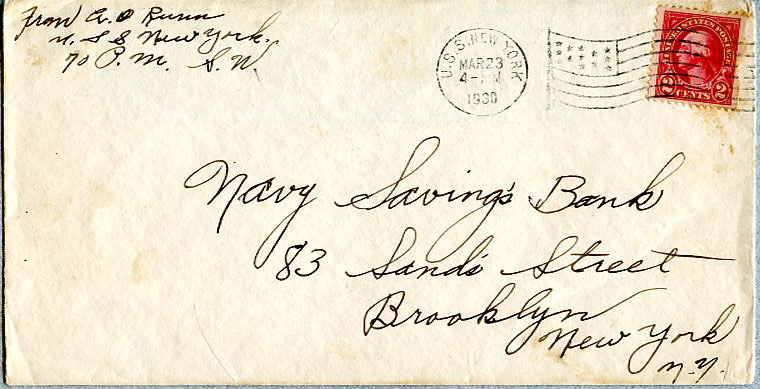 From E. O Runn
U. S S New York.
70 P. M. S. W
U.S.S. NEW YORK
MAR 23
4-PM
1930
UNITED STATES POSTAGE
2 CENTS 2
Navy Saving's Bank
83 Sand's Street
Brooklyn
New York
N.Y.